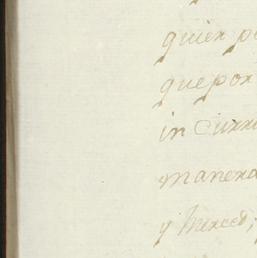 quien p
que por
in Curri
manera
y Merced,